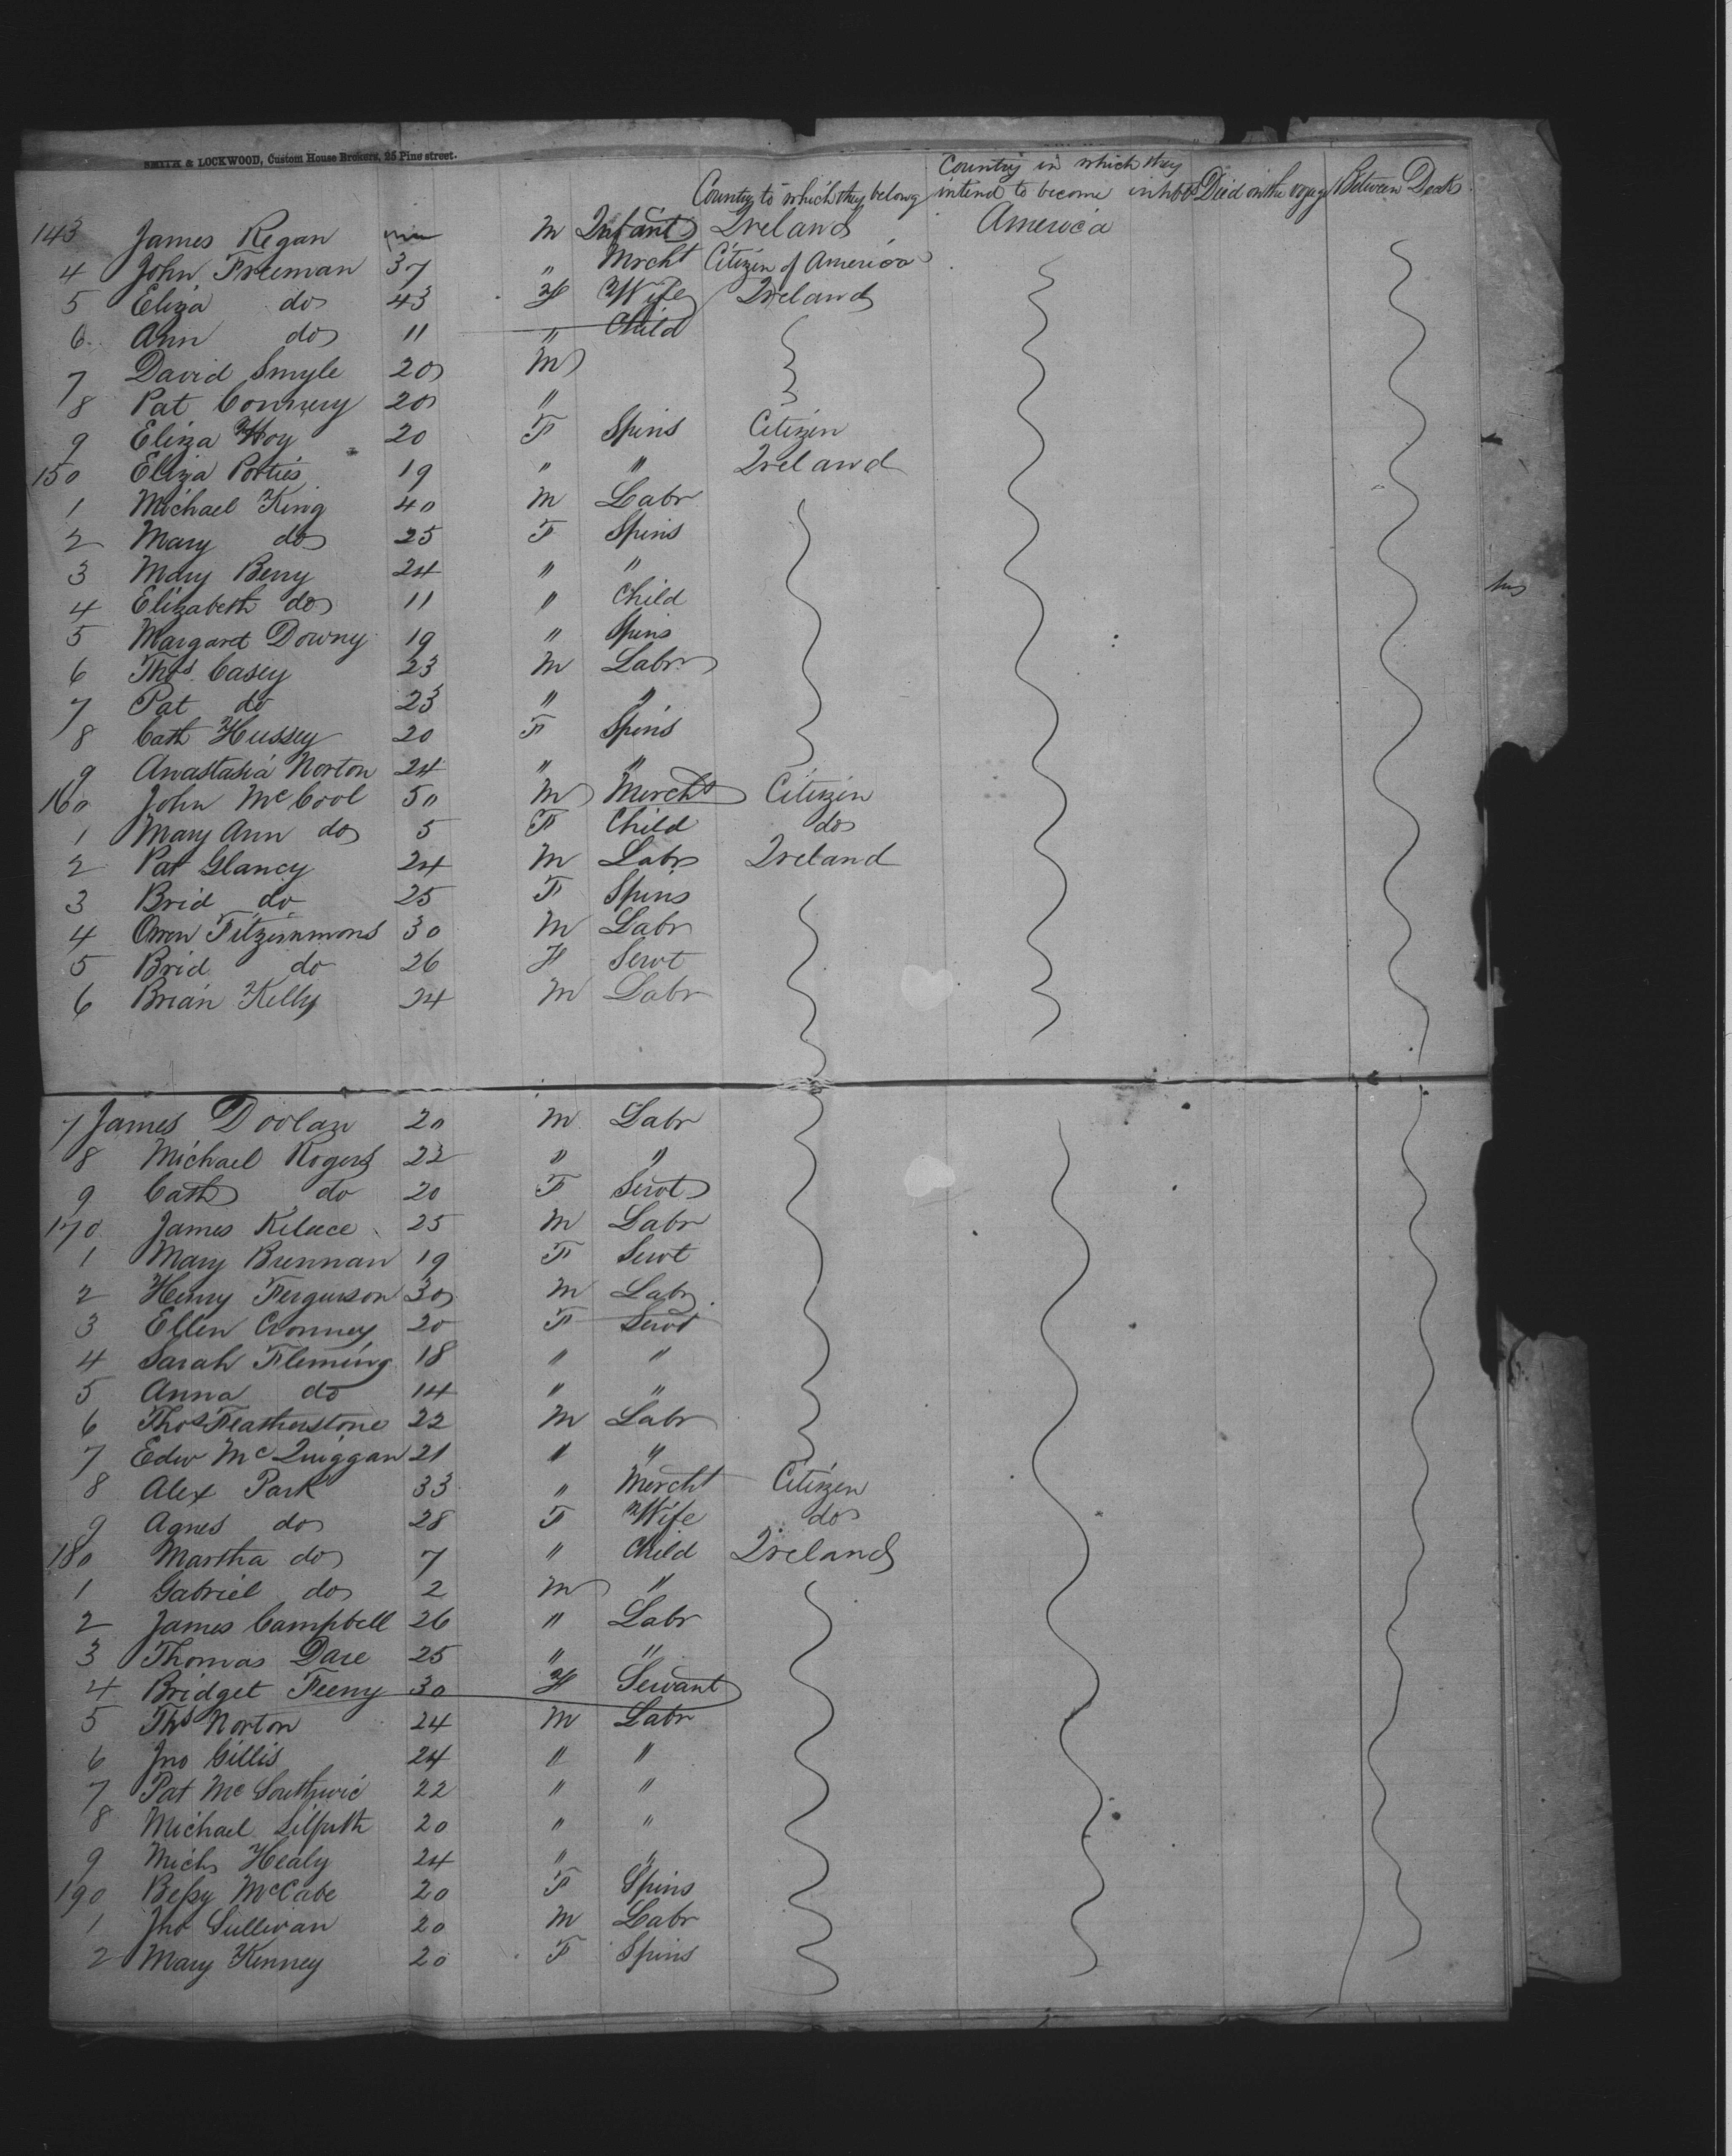 SMITH & LOCKWOOD, Custom House Brokers, 25 Pine street.
Country to which they belong Country in which they intend to become inhbts Died on the voyage Between Decks
143 James Regan m Infant Ireland America
4 John Freeman 37 " Mrcht Citizen of America
5 Eliza do 43 F Wife Ireland
6 Ann do 11 " Child
7 David Smyle 20 M
8 Pat Connery 20 "
9 Eliza Hoy 20 F Spins Citizen
150 Eliza Porties 19 " " Ireland
1 Michael King 40 M Labr
2 Mary do 25 F Spins
3 Mary Berry 24 " "
4 Elizabeth do 11 " Child
5 Margaret Downy 19 " Spins
6 Thos Casey 23 M Labr
7 Pat do 23 " "
8 Cath Hussey 20 F Spins
9 Anastasia Norton 24 " "
160 John McCool 50 M Mercht Citizen
1 Mary Ann do 5 F Child do
2 Pat Glancy 24 M Labr Ireland
3 Brid do 25 F Spins
4 Owen Fitzimmons 30 M Labr
5 Brid do 26 F Servt
6 Brian Kelly 24 M Labr
7 James Doolan 20 M Labr
8 Michael Rogers 22 " "
9 Cath do 20 F Servt
170 James 25 M Labr
1 Mary Brennan 19 F Servt
2 Henry Ferguson 30 M Labr
3 Ellen Cronney 20 F Servt
4 Sarah Fleming 18 " "
5 Anna do 14 " "
6 Thos Featherstone 22 M Labr
7 Edw McQuiggan 21 " "
8 Alex Park 33 " Mercht Citizen
9 Agnes do 28 F Wife do
180 Martha do 7 " Child Ireland
1 Gabriel do 2 M "
2 James Campbell 26 " Labr
3 Thomas Dare 25 " "
4 Bridget Feeny 30 F Servant
5 Ths Norton 24 M Labr
6 Jno Gillis 24 " "
7 Pat Mc 22 " "
8 Michael 20 " "
9 Mich Healy 24 " "
190 Bessy McCabe 20 F Spins
1 Jno Sullivan 20 M Labr
2 Mary Kenney 20 F Spins